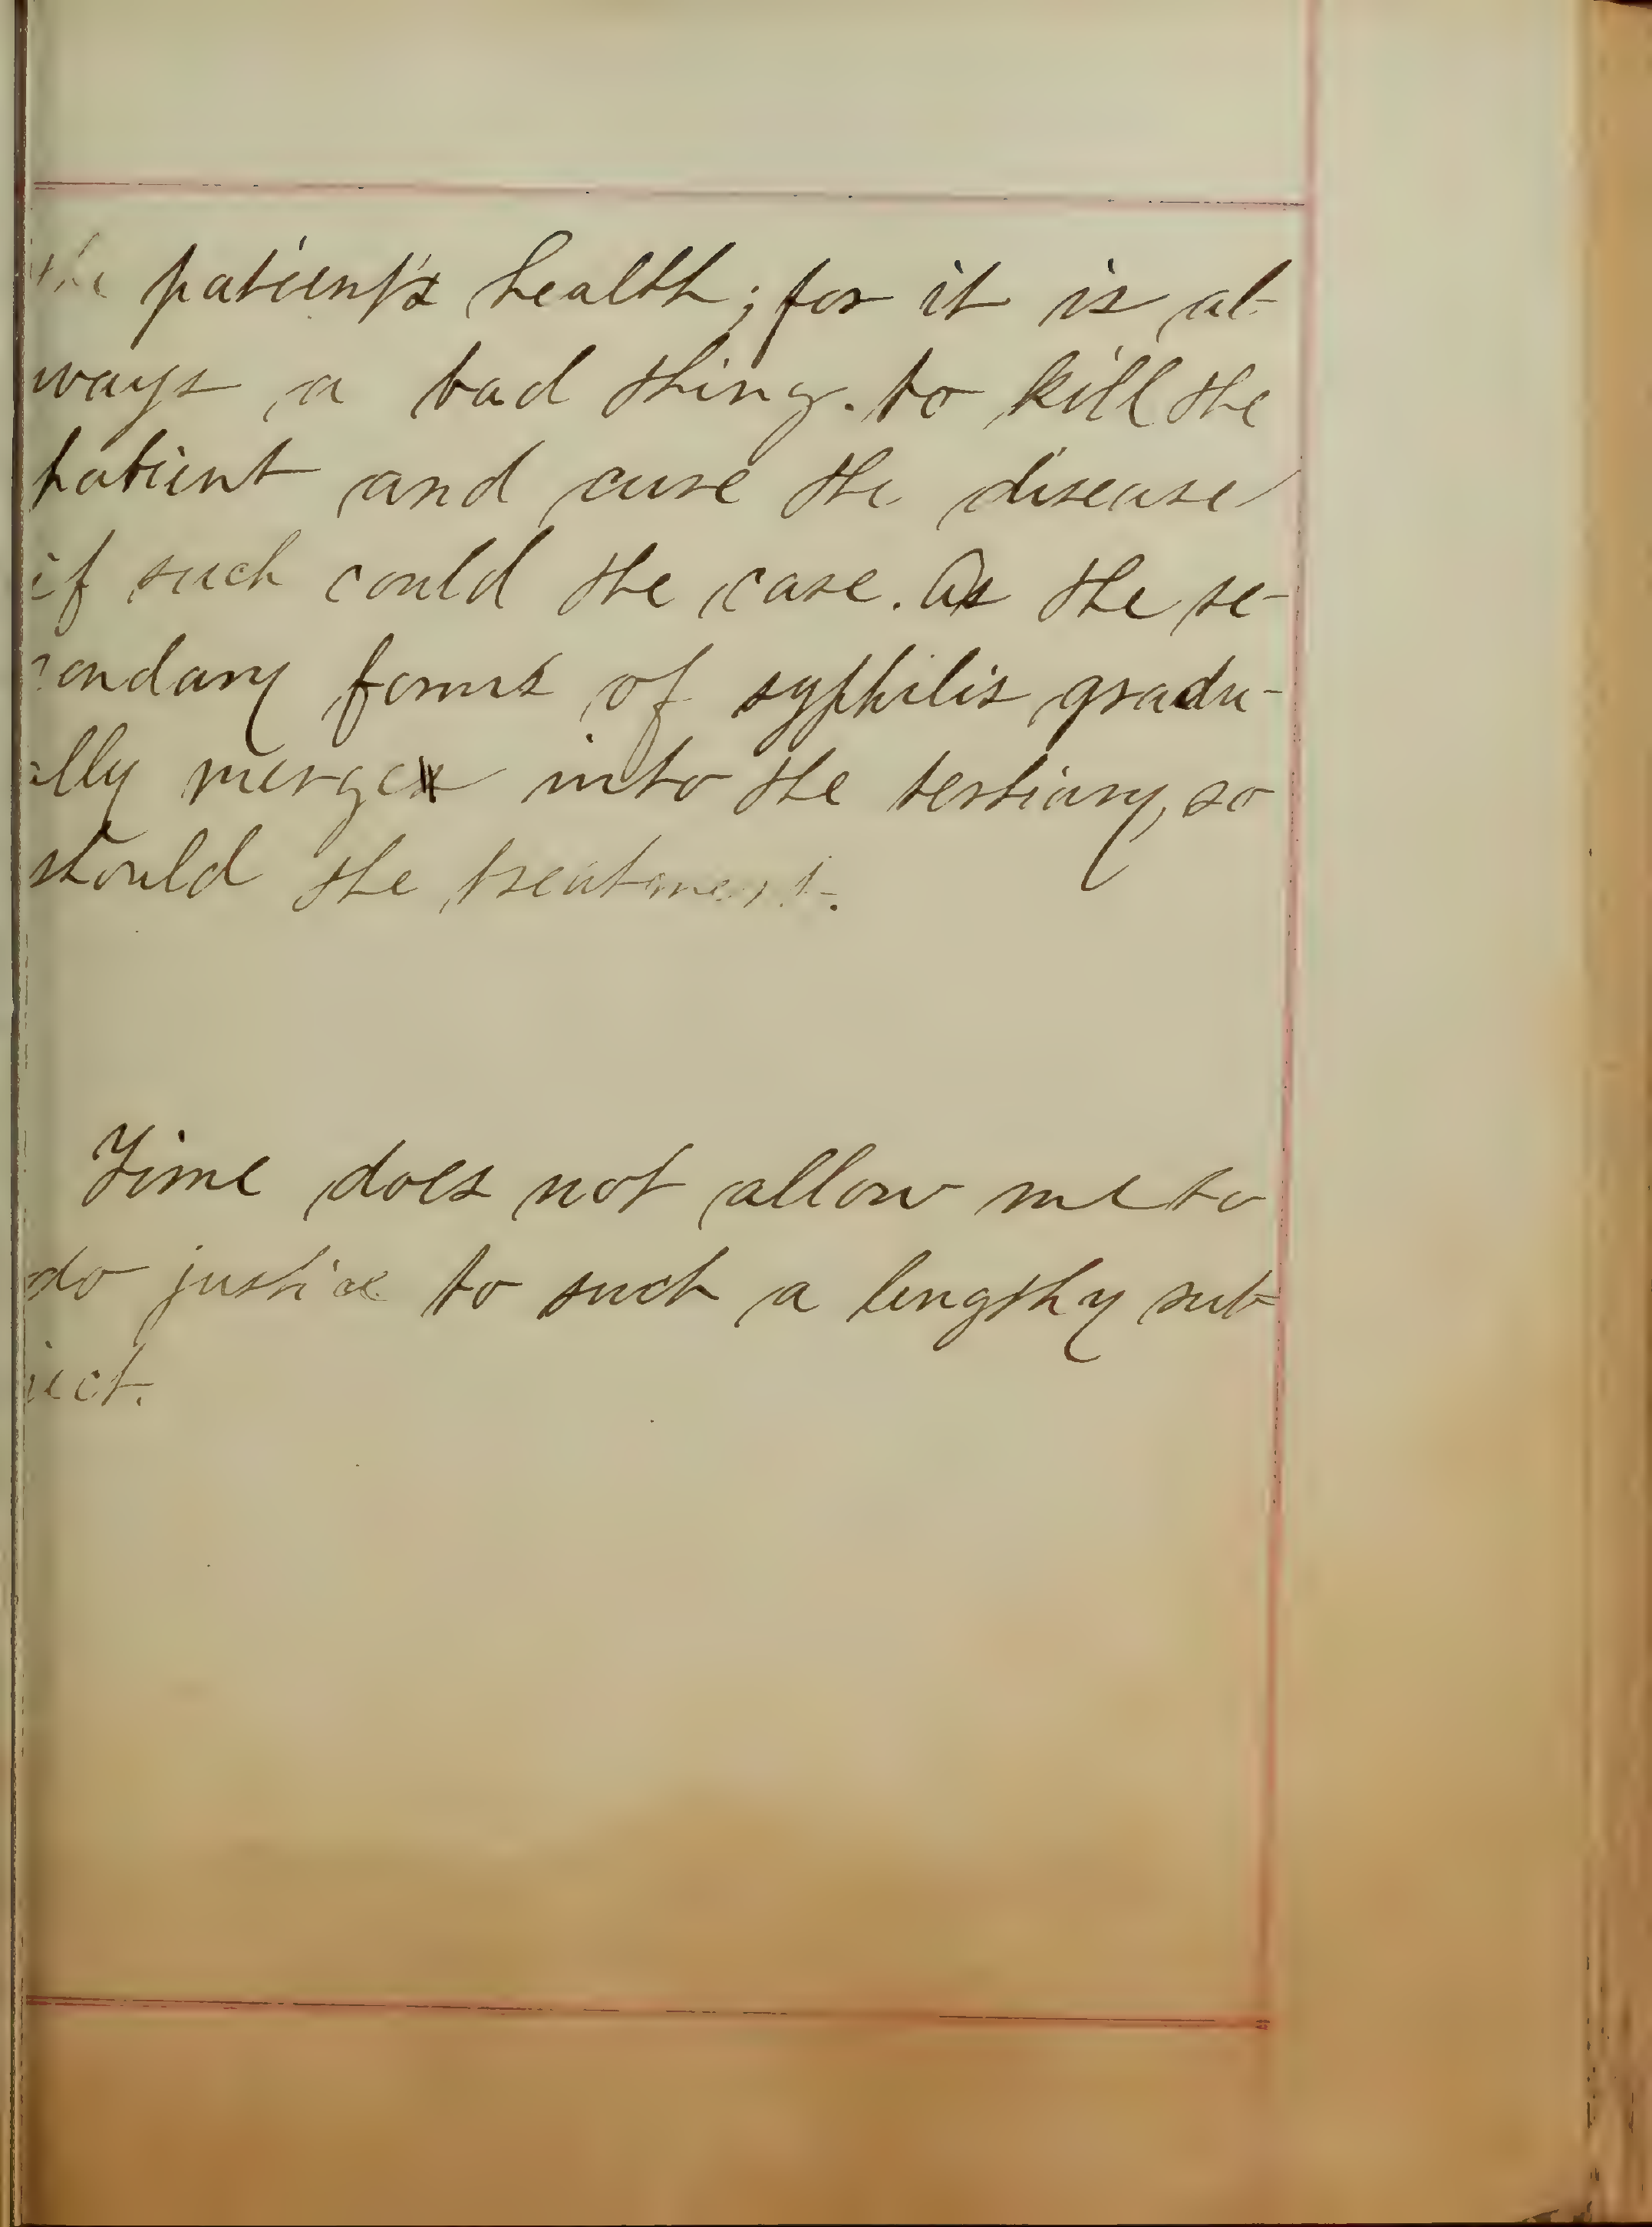 the patient's health; for it is al-
ways a bad thing. to kill the
patient and cure the disease
if such could the case. As the se-
condary forms of syphilis gradu-
ally merge into the tertiary, so
should the treatment.
Time does not allow me to
do justice to such a lengthy sub-
ject.